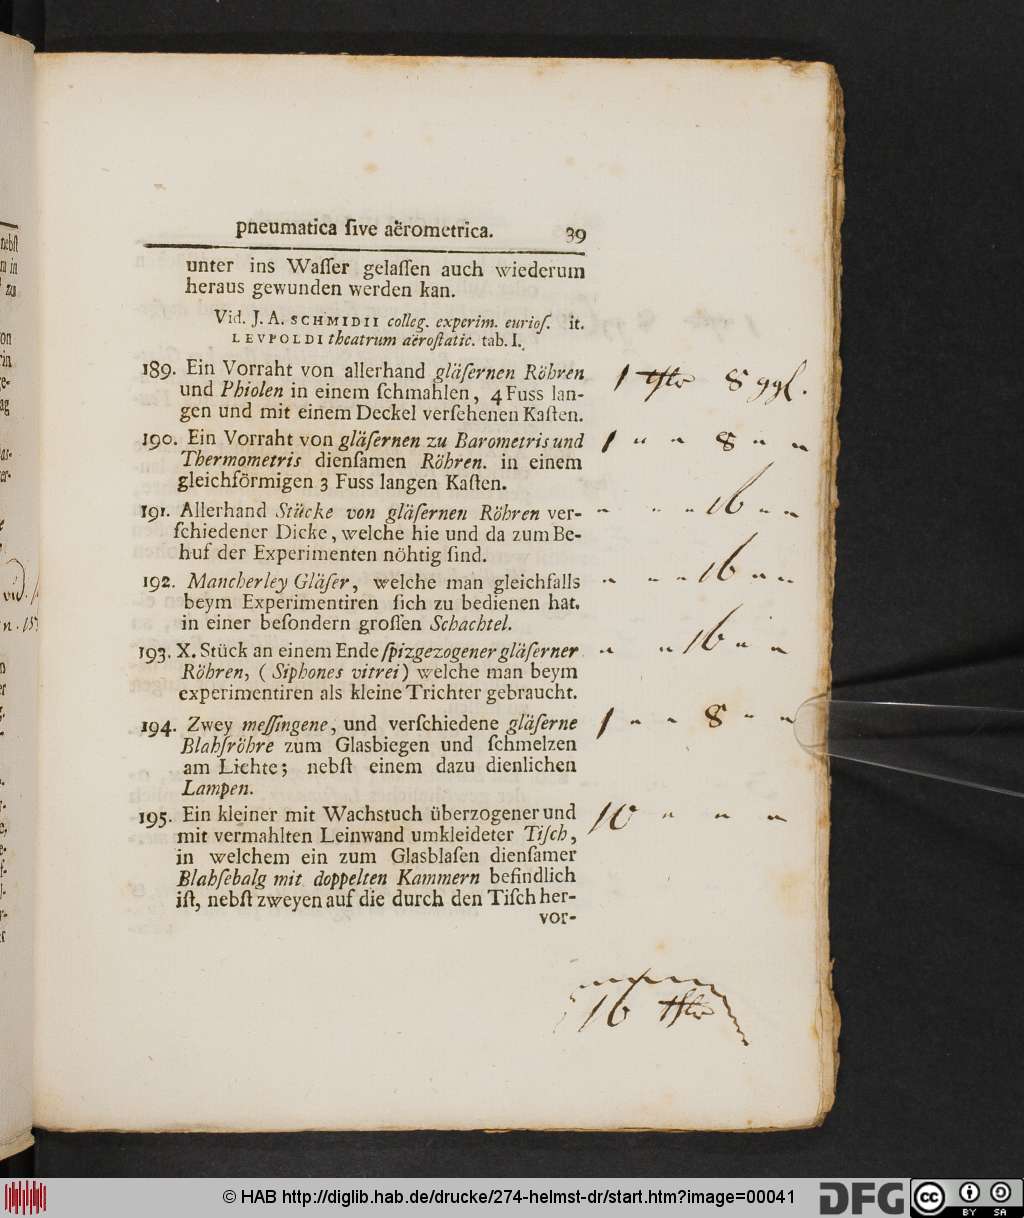 pneumatica ſive aërometrica. 39
unter ins Waſſer gelaſſen auch wiederum
heraus gewunden werden kan.
Vid. J. A. SCHMIDII colleg. experim. curioſ. it.
LEVPOLDI theatrum aëroſtatic. tab. I.
189. Ein Vorraht von allerhand gläſernen Röhren 1 8 ggl.
und Phiolen in einem ſchmahlen, 4 Fuss lan-
gen und mit einem Deckel verſehenen Kaſten.
190. Ein Vorraht von gläſernen zu Barometris und 1 " " 8 " "
Thermometris dienſamen Röhren. in einem
gleichförmigen 3 Fuss langen Kaſten.
191. Allerhand Stücke von gläſernen Röhren ver- " " " 16 " "
ſchiedener Dicke, welche hie und da zum Be-
huf der Experimenten nöhtig ſind.
192. Mancherley Gläſer, welche man gleichfalls " " " 16 " "
beym Experimentiren ſich zu bedienen hat.
in einer beſondern groſſen Schachtel.
193. X. Stück an einem Ende ſpizgezogener gläſerner " " " 16 " "
Röhren, (Siphones vitrei) welche man beym
experimentiren als kleine Trichter gebraucht.
194. Zwey meſſingene, und verſchiedene gläſerne 1 " " 8 " "
Blahſröhre zum Glasbiegen und ſchmelzen
am Lichte; nebſt einem dazu dienlichen
Lampen.
195. Ein kleiner mit Wachstuch überzogener und 10 " " "
mit vermahlten Leinwand umkleideter Tiſch,
in welchem ein zum Glasblaſen dienſamer
Blahſebalg mit doppelten Kammern befindlich
iſt, nebſt zweyen auf die durch den Tiſch her-
vor-
16
© HAB http://diglib.hab.de/drucke/274-helmst-dr/start.htm?image=00041
DFG
cc
BY SA